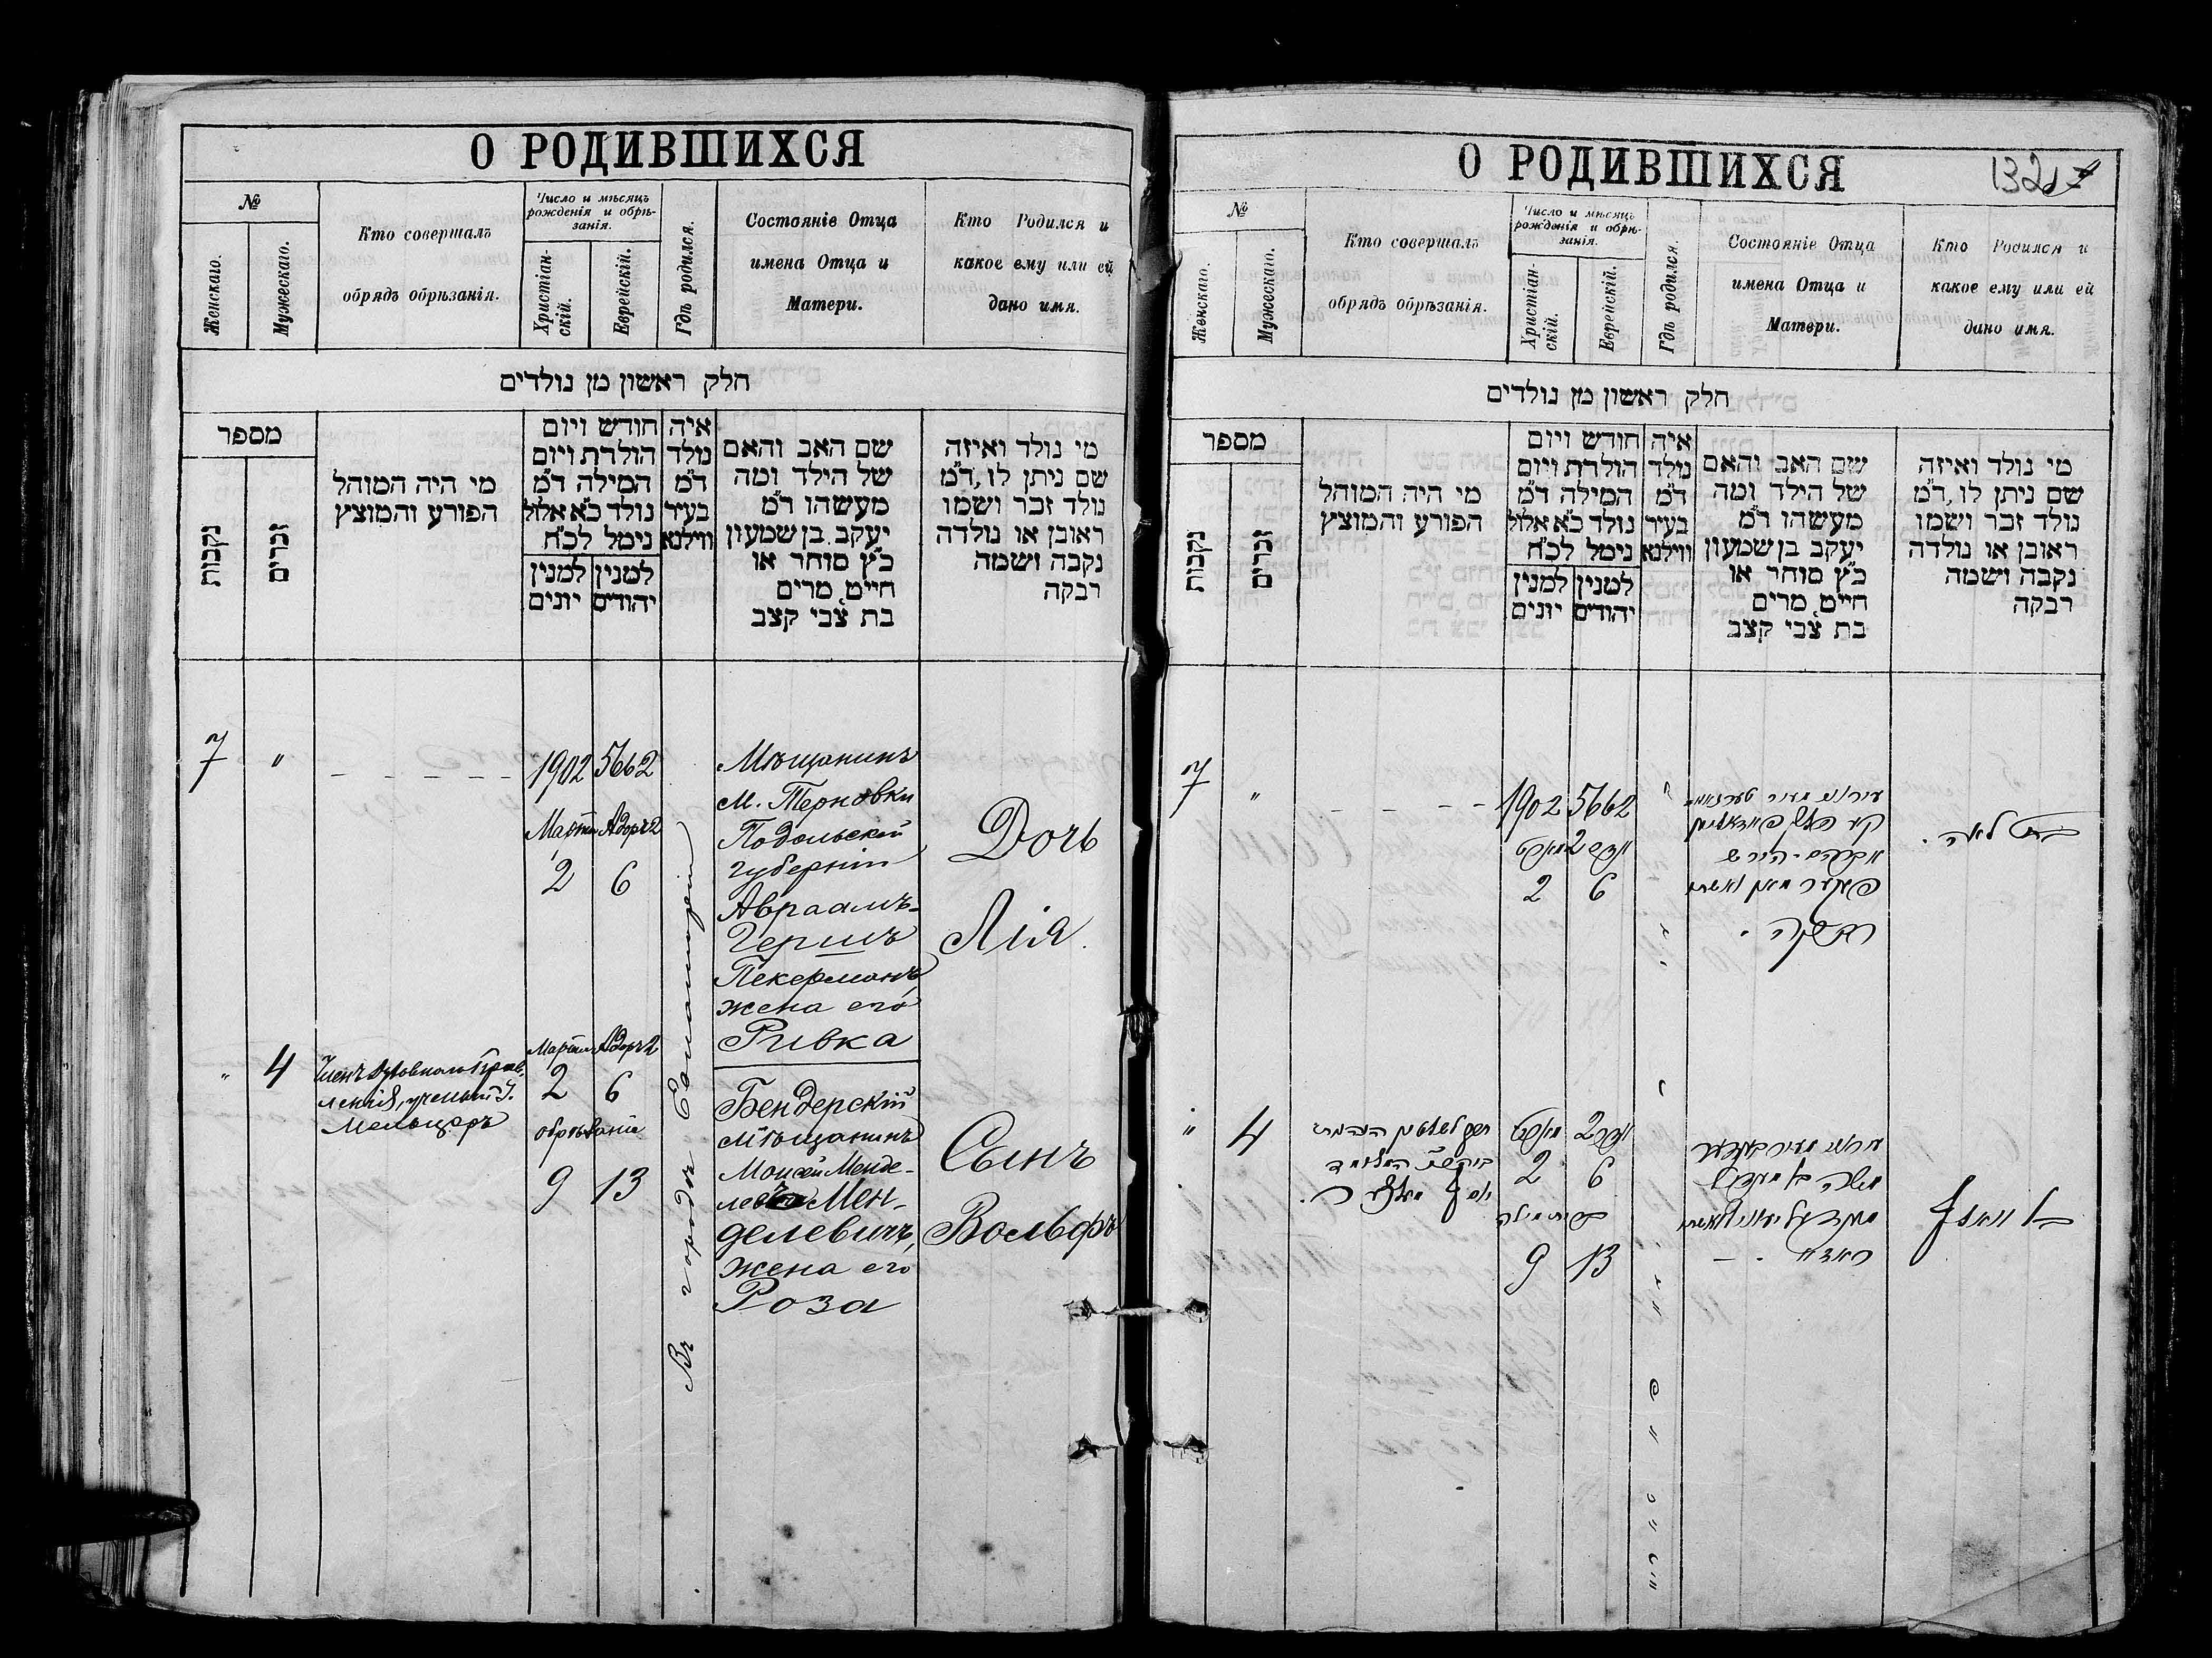 О РОДИВШИХСЯ
№
Женскаго.
Мужескаго.
Кто совершалъ
обрядъ обрѣзанія.
Число и мѣсяцъ
рожденія и обрѣ-
занія.
Христіан-
скій.
Еврейскій.
Гдѣ родился.
Состояніе Отца
имена Отца и
Матери.
Кто Родился и
какое ему или ей
дано имя.
חלק ראשון מן נולדים
מספר
נקבות
זכרים
מי היה המוהל
הפורע והמוצץ
חודש ויום
הולדת ויום
המילה ד״מ
נולד כ״א אלול
נימל לכ״ח
למנין
יונים
למנין
יהודים
איה
נולד
ד״מ
בעיר
ווילנא
שם האב והאם
של הילד ומה
מעשהו ד״מ
יעקב בן שמעון
כ״ץ סוחר או
חייט, מרים
בת צבי קצב
מי נולד ואיזה
שם ניתן לו, ד״מ
נולד זכר ושמו
ראובן או נולדה
נקבה ושמה
רבקה
7 " - - - - -
1902 5662
Марта Адоръ 2
2 6
Въ городѣ
Мѣщанинъ
м. Терновки
Подольской
губерніи
Авраамъ-
Гершъ
Пекерманъ,
жена его
Ривка
Дочь
Лія.
" 4
Членъ Духовнаго Прав-
ленія, ученый
Мельцеръ
Марта Адоръ 2
2 6
обрѣзаніе
9 13
Бендерскій
мѣщанинъ
Моисей Менде-
Мен-
делевичъ,
жена его
Роза
Сынъ
Вольфъ
О РОДИВШИХСЯ
132
№
Женскаго.
Мужескаго.
Кто совершалъ
обрядъ обрѣзанія.
Число и мѣсяцъ
рожденія и обрѣ-
занія.
Христіан-
скій.
Еврейскій.
Гдѣ родился.
Состояніе Отца
имена Отца и
Матери.
Кто Родился и
какое ему или ей
дано имя.
חלק ראשון מן נולדים
מספר
נקבות
זכרים
מי היה המוהל
הפורע והמוצץ
חודש ויום
הולדת ויום
המילה ד״מ
נולד כ״א אלול
נימל לכ״ח
למנין
יונים
למנין
יהודים
איה
נולד
ד״מ
בעיר
ווילנא
שם האב והאם
של הילד ומה
מעשהו ד״מ
יעקב בן שמעון
כ״ץ סוחר או
חייט, מרים
בת צבי קצב
מי נולד ואיזה
שם ניתן לו, ד״מ
נולד זכר ושמו
ראובן או נולדה
נקבה ושמה
רבקה
7 " - - - -
1902 5662
מארט אדר 2
2 6
אברהם-הירש
פעקערמאן ואשתו
רבקה.
בת לאה.
" 4
מארט אדר 2
2 6
ברית מילה
9 13
משה בן מענדל
מענדעלעוויץ ואשתו
ראזא. -
בן וואלף